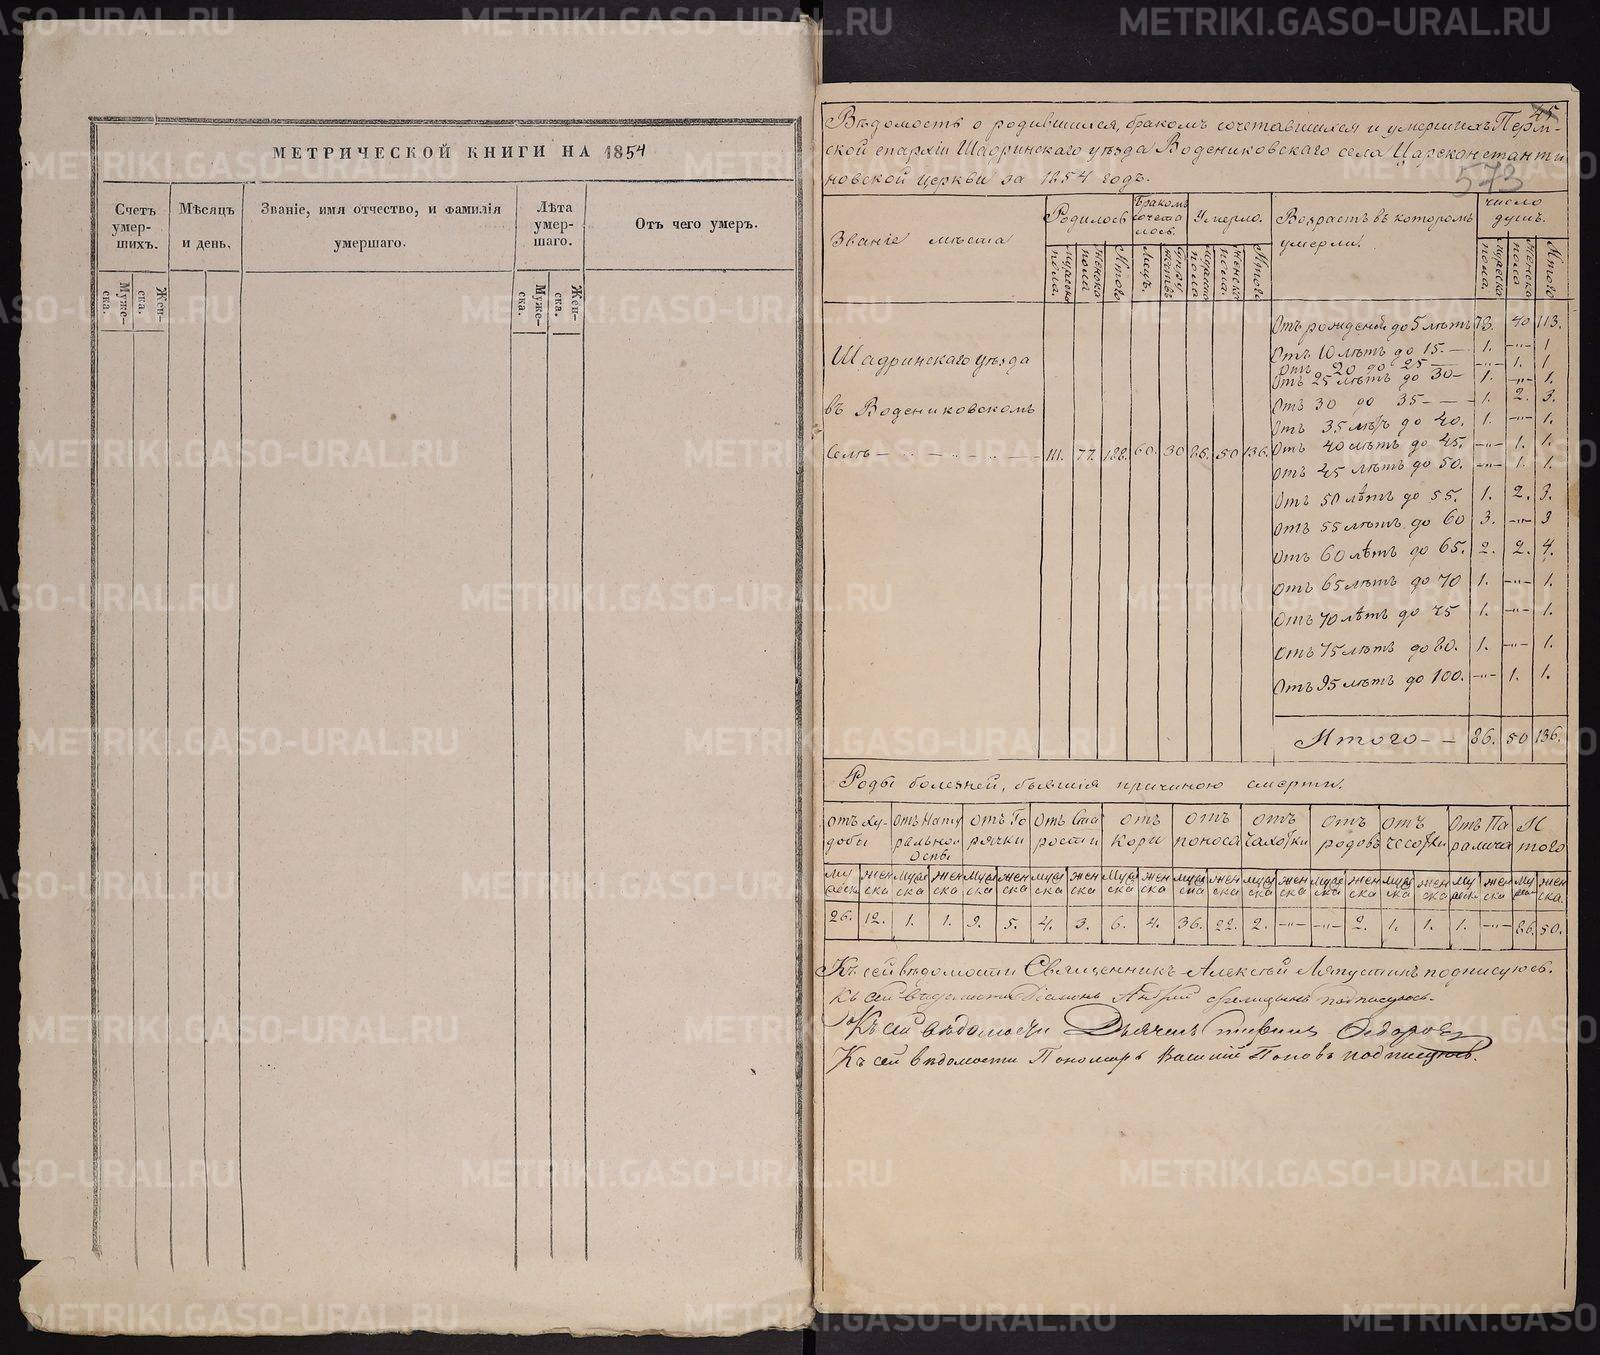 МЕТРИЧЕСКОЙ КНИГИ НА 1854
Счетъ умер-шихъ.
Муже-ска.
Жен-ска.
Мѣсяцъ и день.
Званіе, имя отчество, и фамилія умершаго.
Лѣта умер-шаго.
Муже-ска.
Жен-ска.
Отъ чего умеръ.
45
573
Вѣдомость о родившихся, бракомъ сочетавшихся и умершихъ Перм-
ской епархіи Шадринскаго уѣзда Водениковскаго села Цареконстанти
новской церкви за 1854 годъ.
Званіе мѣста
Родилось
Мужеска пола.
Женска пола
Итого
Бракомъ сочета лось.
Лицъ.
Супружествъ
Умерло.
Мужеска пола
Женска пола.
Итого
Возрастъ въ которомъ умерли.
число душъ.
Мужеска пола.
Женска пола
Итого
Шадринскаго уѣзда
въ Водениковскомъ
Селѣ 111. 77. 188. 60. 30 86. 50 136.
Отъ рожденій до 5 лѣтъ 73. 40 113.
Отъ 10 лѣтъ до 15. — 1. —"— 1
Отъ 20 до 25 — —"— 1. 1
Отъ 25 лѣтъ до 30 — 1. —"— 1.
Отъ 30 до 35 — — 1. 2. 3.
Отъ 35 лѣтъ до 40. 1. —"— 1.
Отъ 40 лѣтъ до 45. —"— 1. 1.
Отъ 45 лѣтъ до 50. —"— 1. 1.
Отъ 50 лѣтъ до 55. 1. 2. 3.
Отъ 55 лѣтъ до 60 3. —"— 3
Отъ 60 лѣтъ до 65. 2. 2. 4.
Отъ 65 лѣтъ до 70 1. —"— 1.
Отъ 70 лѣтъ до 75 1. —"— 1.
Отъ 75 лѣтъ до 80. 1. —"— 1.
Отъ 95 лѣтъ до 100. —"— 1. 1.
Итого — — 86. 50 136.
Роды болезней, бывшія причиною смерти.
отъ ху-добы
отъ Нату ральной Оспы
отъ Го рячки
Отъ Ста рости
отъ Кори
отъ поноса
отъ Чахотки
отъ родовъ
отъ чесотки
Отъ Па ралича
И того
Му жеска Жен ска Муже ска Жен ска Муже ска Жен ска Муже ска Жен ска Муже ска Жен ска Муже ска Жен ска Муже ска Жен ска Муже ска Жен ска Муже ска Жен ска Му жеска Жен ска Му жеска Жен ска.
26. 12. 1. 1. 9. 5. 4. 3. 6. 4. 36. 22. 2. —"— —"— 2. 1. 1. 1. —"— 86. 50.
Къ сей вѣдомости Священникъ Алексѣй Ляпустинъ подписуюсь.
Къ сей вѣдомости Діаконъ Андрей подписуюсь.
Къ сей вѣдомости Дьячекъ Ѳедоровъ
Къ сей вѣдомости Пономарь Василій Поповъ подписуюсь.
METRIKI.GASO-URAL.RU